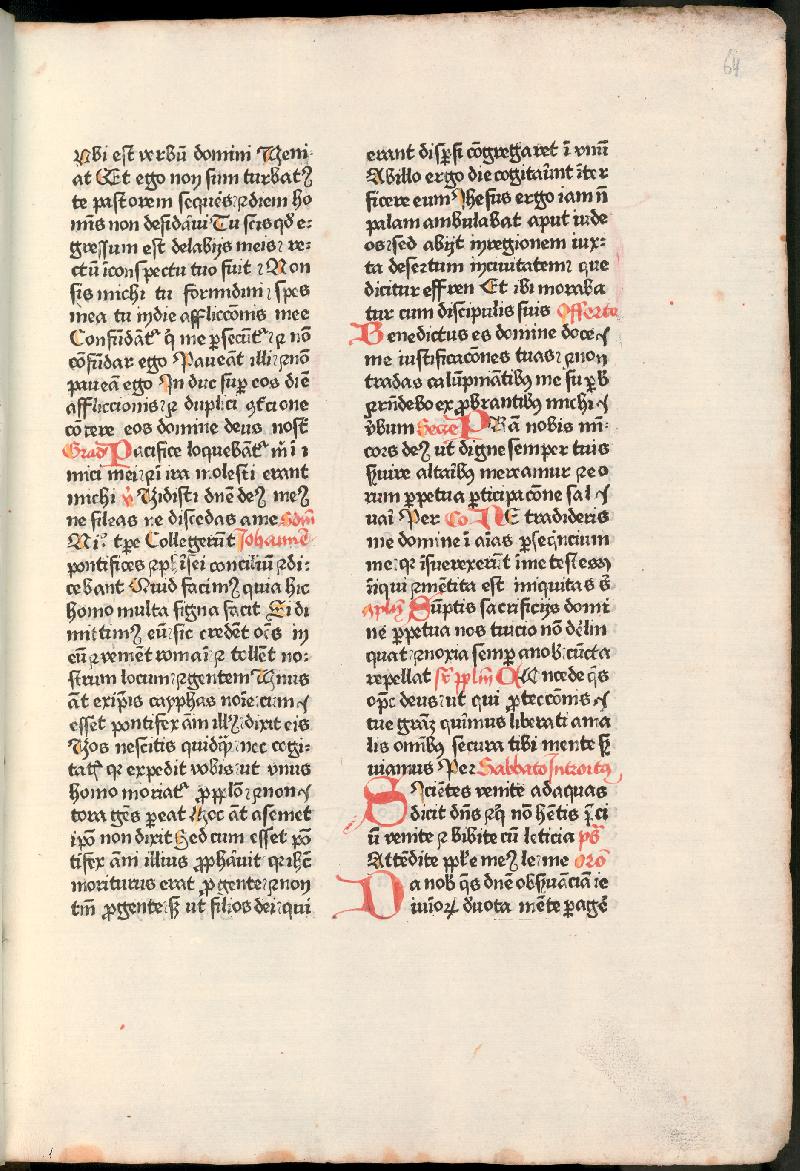 64
Vbi est verbū domini Veni-
at Et ego non sum turbatꝯ
te pastorem sequēs ⁊ diem ho
mīs non desidāui Tu scis qd̄ e-
gressum est de labijs meis ⁊ re-
ctū ī conspectu tuo fuit ⁊ Non
sis michi tu formidini spes
mea tu in die affliccōnis mee
Confūdāt᷑ q̇ me ꝑsecūt᷑ ⁊ nō
cōfūdar ego Paueāt illi ⁊ nō
paueā ego In duc suꝑ eos diē
affliccionis ⁊ duplici ꝯt͛cione
cōtere eos domine deus nost͛
Grad᷑ Pacifice loquebāt᷑ m̄ i i
mici mei ⁊ ī ira molesti erant
michi v̇ Vidisti dn̄e deꝯ meꝯ
ne sileas ne discedas a me Scd̄m
N i᷑ tꝑe Collegerūt Johannē
pontifices ⁊ ph͛isei conciliū ⁊ di-
cebant Quid facimꝯ quia hic
homo multa signa facit Si di
mittimꝯ eū sic credēt oēs in
eū ⁊ venient romai ⁊ tollēt no-
strum locum ⁊ gentem Vnus
āt ex ip̄is cayphas noīe cum
esset pontifex āni illiꝯ dixit eis
Vos nescitis quidq̄ꝫ nec cogi-
tatꝭ qꝛ expedit vobis ut vnus
homo moriat᷑ ꝓ pp̄lo ⁊ non
tota gēs ꝑeat Hoc āt a semet
ip̄o non dixit Sed cum esset pō
tifex āni illius ꝓph͛auit qꝛ ih̄c
moriturus erat ꝓ gente ⁊ non
tm̄ ꝓ gente sꝫ ut filios dei qui
erant disꝑsi cōgregaret ī vnū
Ab illo ergo die cogitau͛nt īter
ficere eum Jhesus ergo iam n̄
palam ambulabat aput iude
os sed abijt in regionem iux-
ta desertum in ciuitatem que
dicitur effren Et ibi moraba
tur cum discipulis suis Offerto
Benedictus es domine doce
me iustificacōnes tuas ⁊ non
tradas calūpniātibꝯ me suꝑb
⁊ rn̄debo exꝓbrantibꝯ michi
v͛bum Secre PRā nobis mi-
cors deꝯ ut digne semper tuis
s͛uire altaribꝯ mereamur ⁊ eo
rum ꝑpetua ꝑticipacōne sal
uai Per Co NE tradideris
me domine ī aīas ꝑseq̄ncium
me qꝛ īsurrexerūt ī me testes
iniqui ⁊ mētita est iniquitas s
aplīꝯ Sūptis sacrificijs domi
ne ꝑpetua nos tuicio nō delin
quat ⁊ noxia semꝑ a nob cūcta
repellat sr̄ ppl̄m COncede qs̄
opс deus ut qui ꝓteccōnis
tue grāꝫ quīmus liberati a ma
lis omībꝯ secura tibi mente s͛
uiamus Per Sabbato Introitꝯ
Sicientes venite ad aquas
dicit dn̄s ⁊ q̇ nō hētis p̄ci
ū venite ⁊ bibite cū leticia ps̄
Attēdite pp̄le meꝯ le me orō
Da nob qs̄ dn̄e obs͛uāciā ie
iūioꝝ d͛uota mēte ꝑage͛